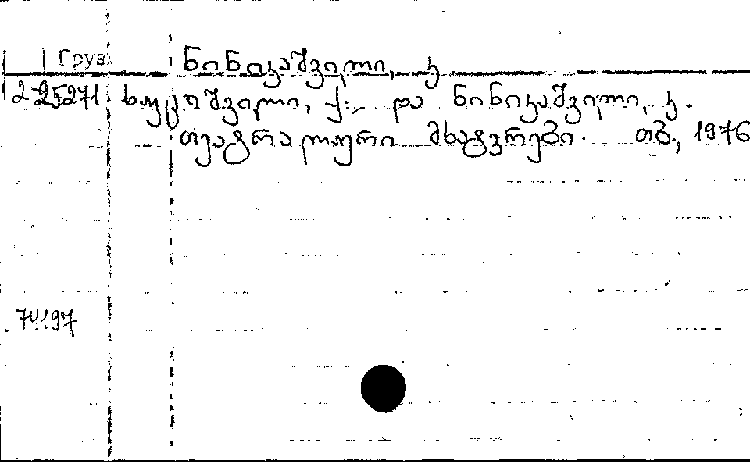 Груз
ნინიკაშვილი, კ
2-25271 სუკიშვილი, ქ., და ნინიკაშვილი, კ.
თეატრალური მხატვრები. თბ., 1976
74197